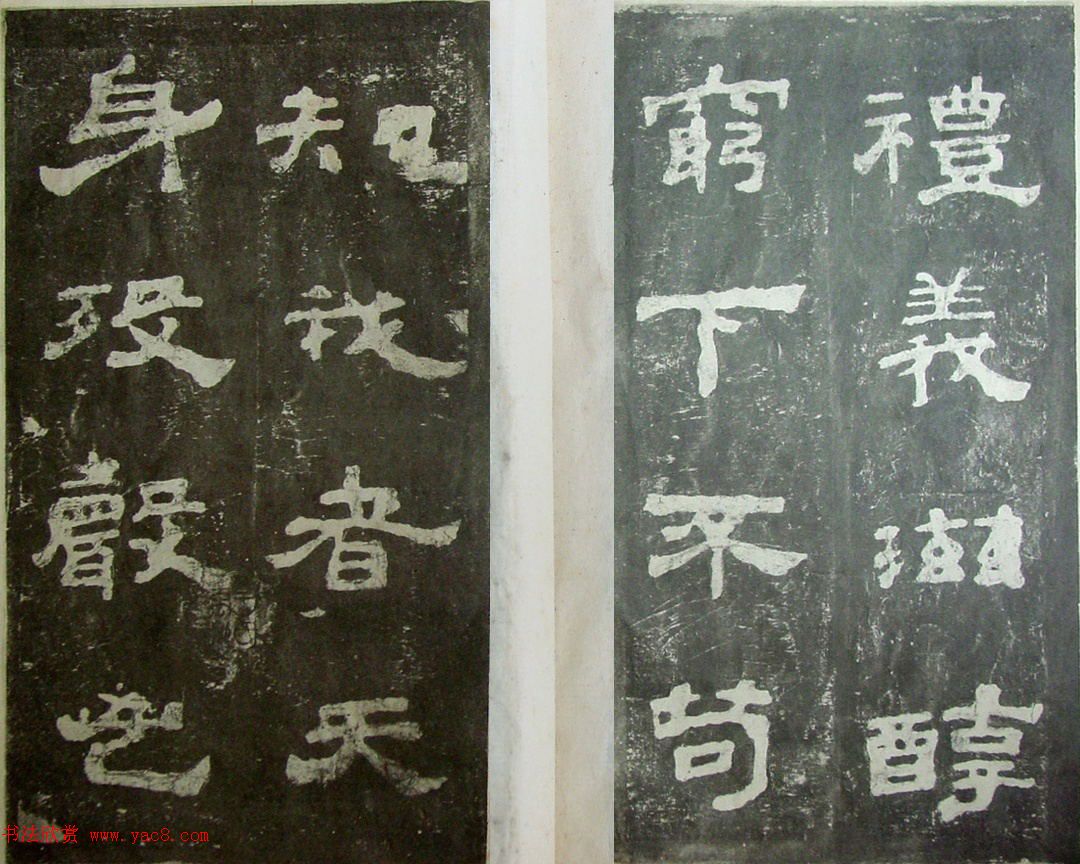 禮義滋醇
窮下不苟
知我者天
身歿聲
书法欣赏 www.yac8.com